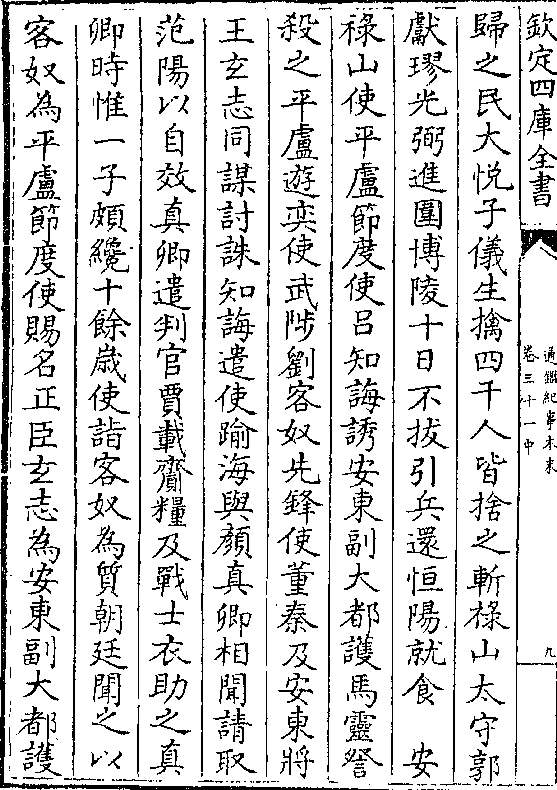 欽定四庫全書
通鑑紀事本末
卷三十一中
九
歸之民大悅子儀生擒四千人皆捨之斬祿山太守郭
獻璆光弼進圍博陵十日不拔引兵還恒陽就食 安
祿山使平盧節度使呂知誨誘安東副大都護馬靈詧
殺之平盧遊奕使武陟劉客奴先鋒使董秦及安東將
王玄志同謀討誅知誨遣使踰海與顏真卿相聞請取
范陽以自效真卿遣判官賈載齎糧及戰士衣助之真
卿時惟一子頗纔十餘歲使詣客奴為質朝廷聞之以
客奴為平盧節度使賜名正臣玄志為安東副大都護